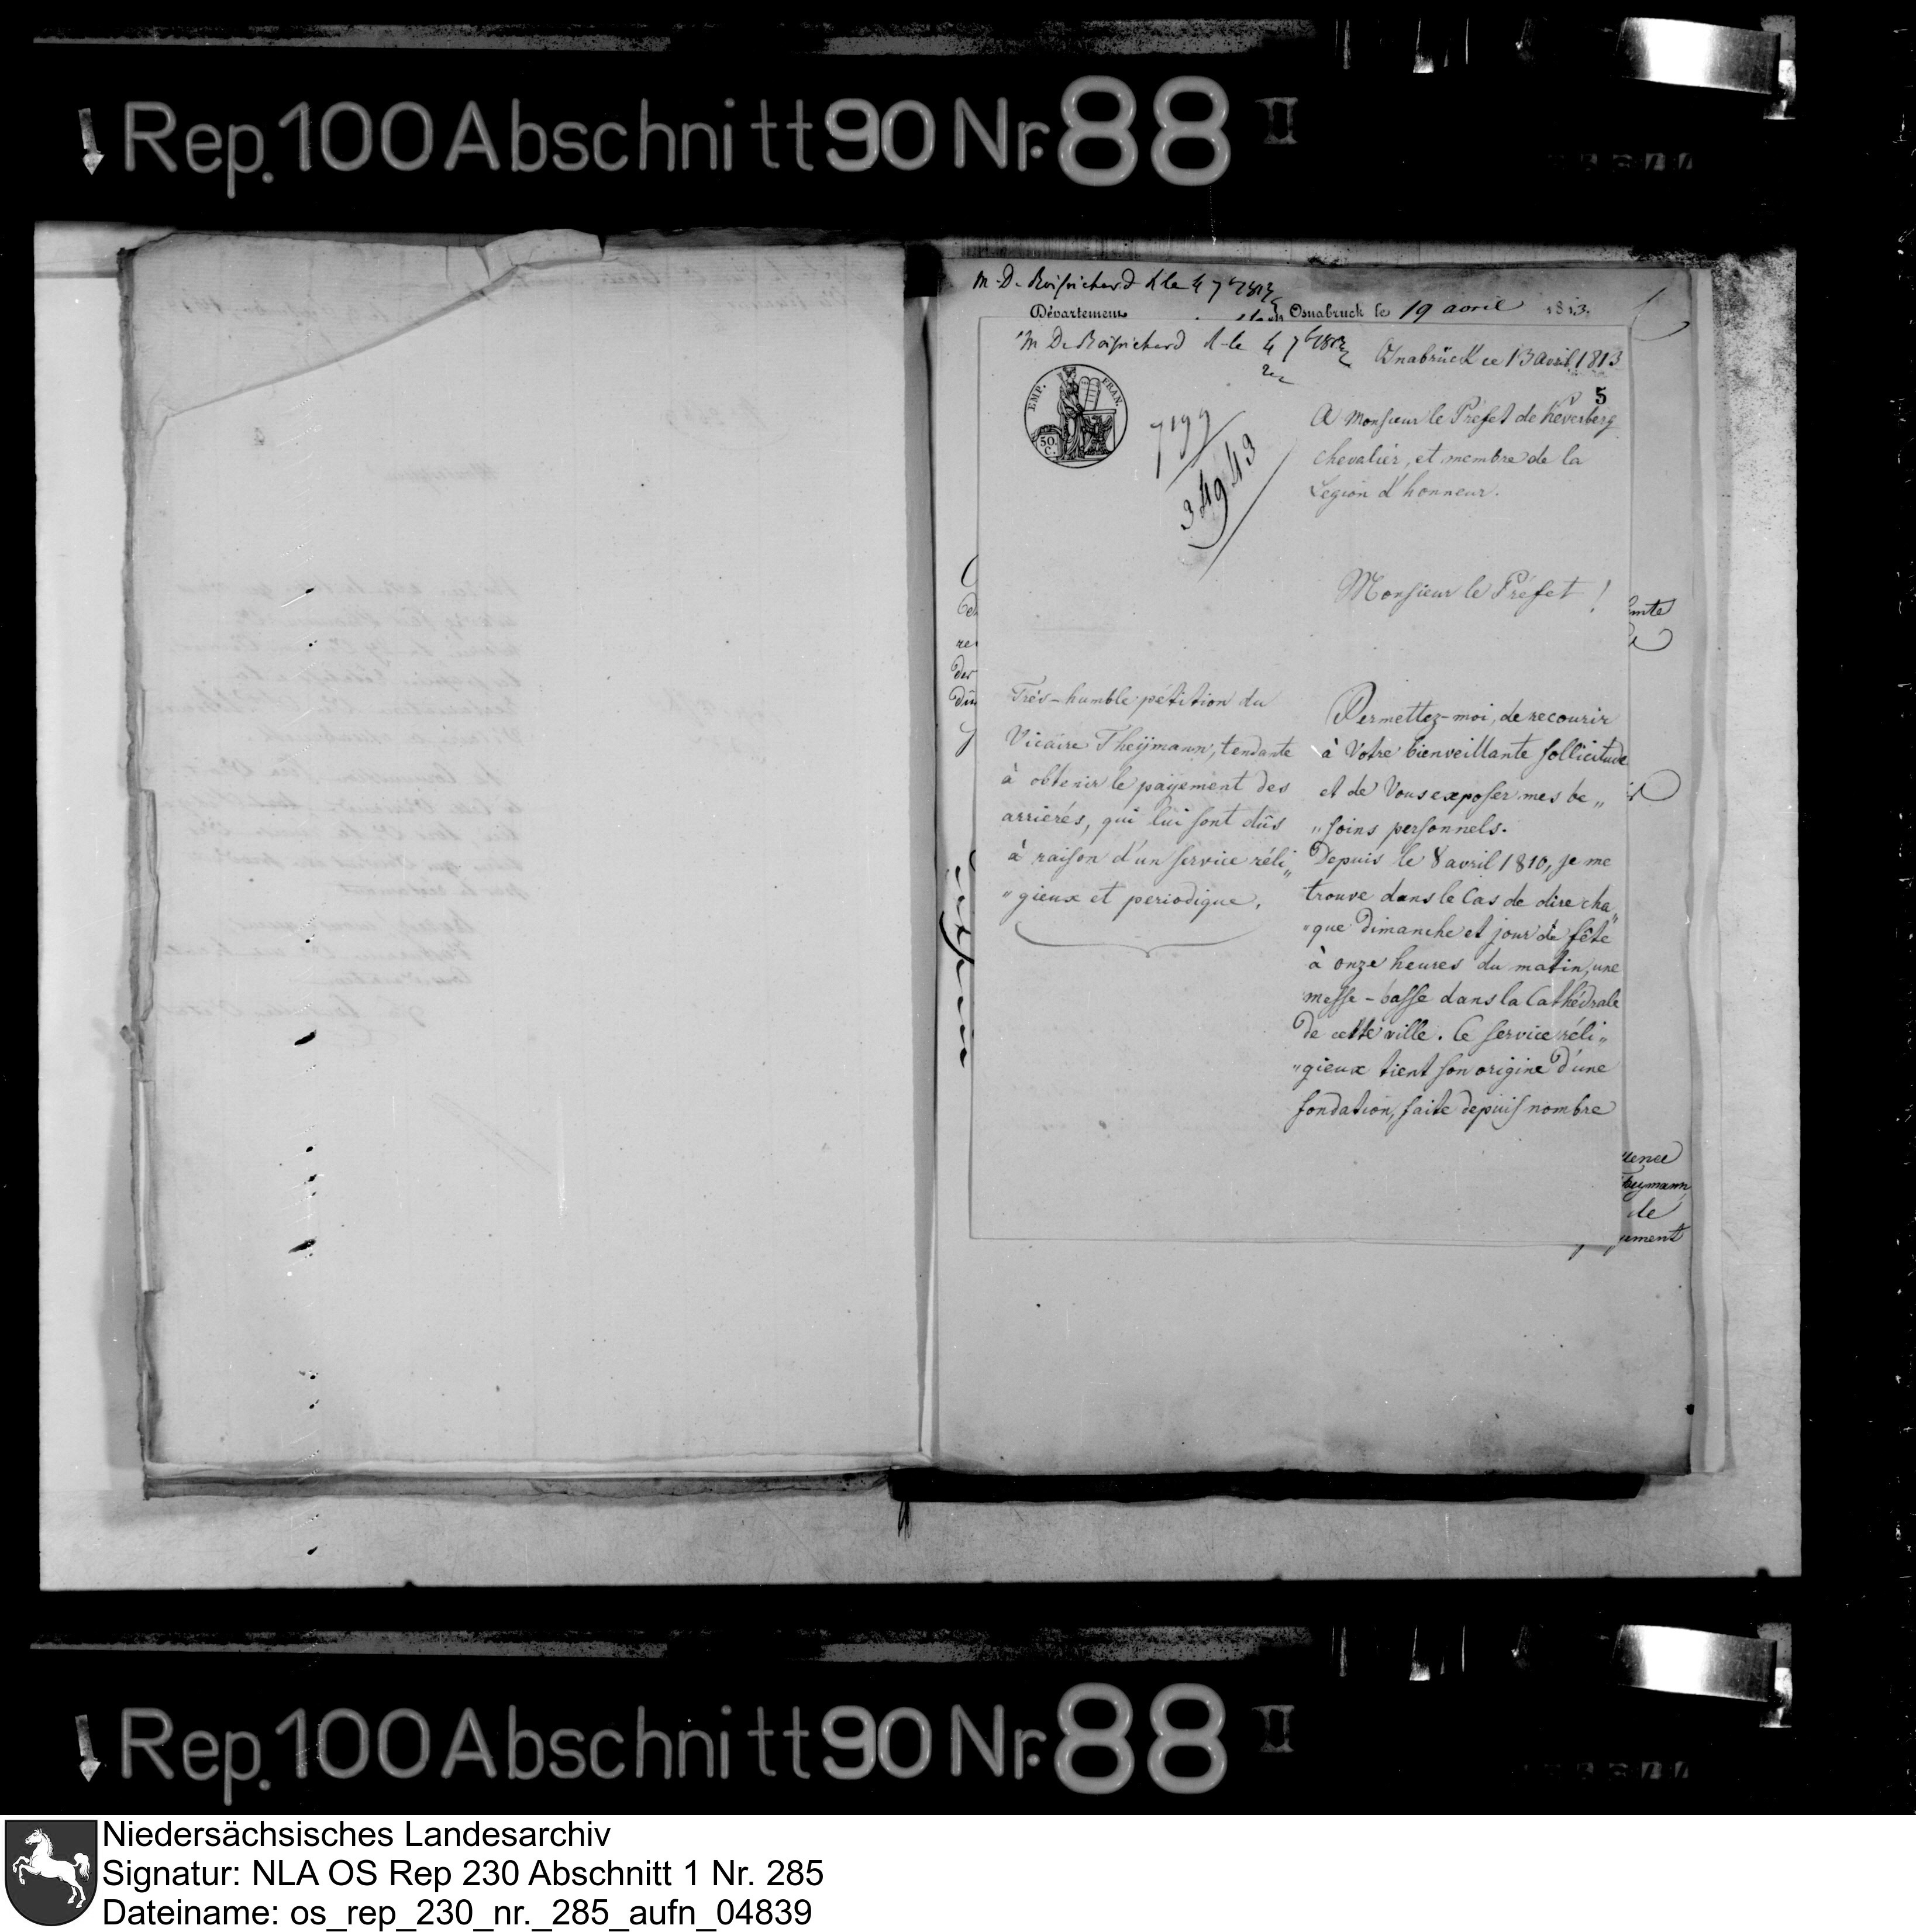 Rep. 100 Abschnitt 90 Nr. 88 II
M. De Boisrichard
Département
Osnabruck le 19 avril 1813.
M. De Boisrichard
Osnabrück ce 13 avril 1813
5
EMP. FRAN.
50. C.
7199
34943
A Monsieur le Préfet de Keverberg
chevalier, et membre de la
Legion d'honneur.
Monsieur le Préfet !
Trés-humble pétition du
Vicaire Theÿmann, tendante
à obtenir le payement des
arriérés, qui lui sont dûs
à raison d'un service réli„
„gieux et periodique.
Permettez-moi, de recourir
à Votre bienveillante sollicitude
et de Vous exposer mes be„
„soins personnels.
Depuis le 8 avril 1810, je me
trouve dans le Cas de dire cha„
„que Dimanche et jour de fête
à onze heures du matin, une
messe-basse dans la Cathédrale
de cette ville. Ce service réli„
„gieux tient son origine d'une
fondation, faite depuis nombre
uence
heymann,
de
ement
Rep. 100 Abschnitt 90 Nr. 88 II
Niedersächsisches Landesarchiv
Signatur: NLA OS Rep 230 Abschnitt 1 Nr. 285
Dateiname: os_rep_230_nr._285_aufn_04839